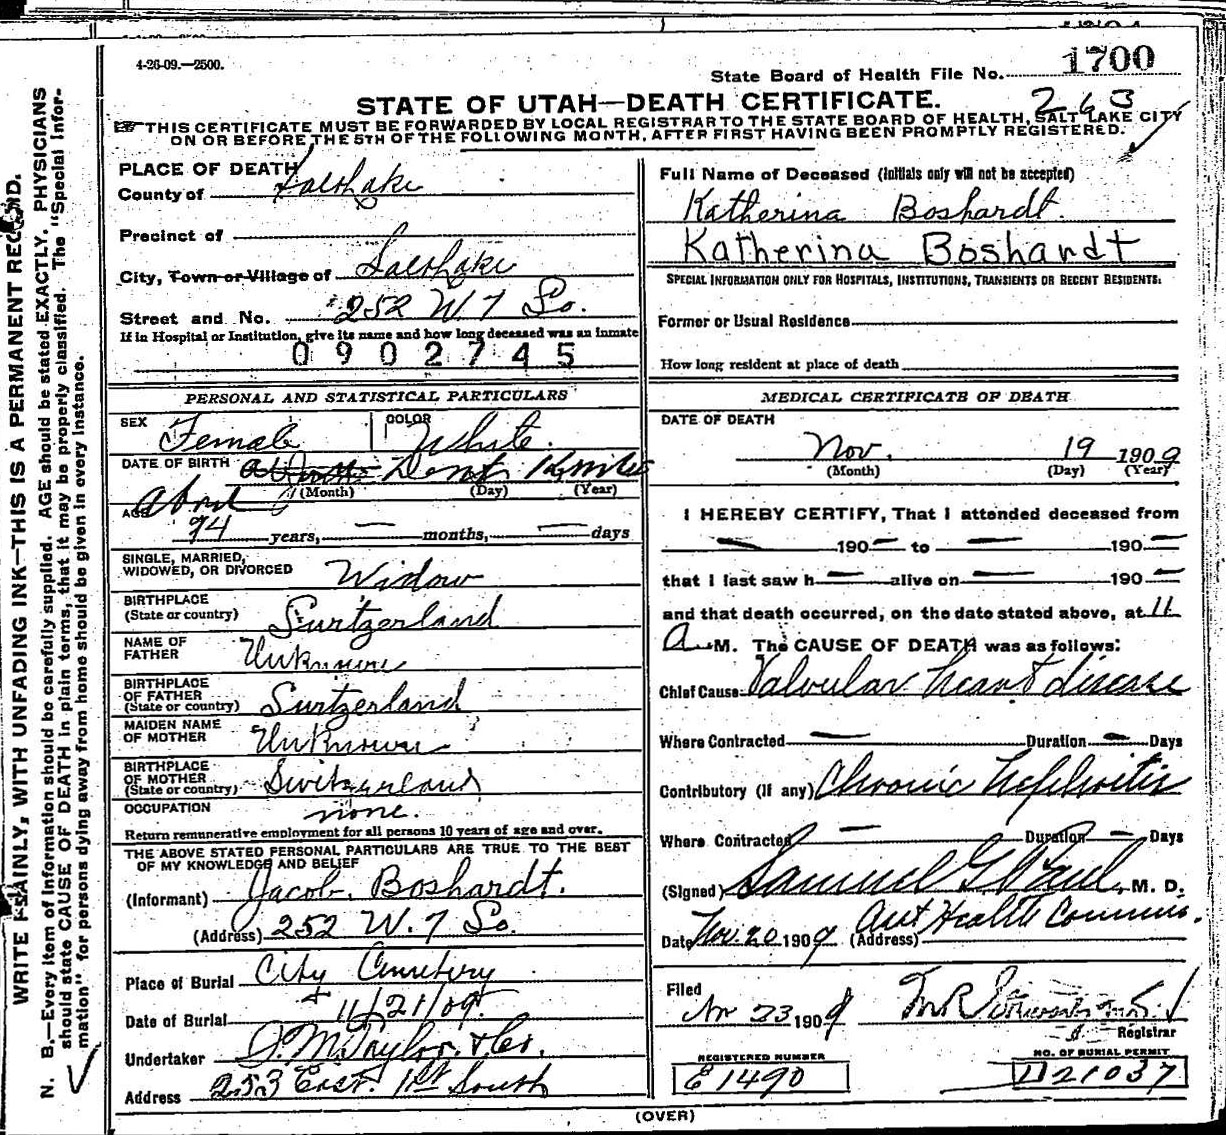 4-26-09.—2500.
State Board of Health File No. 1700
STATE OF UTAH—DEATH CERTIFICATE. 263
THIS CERTIFICATE MUST BE FORWARDED BY LOCAL REGISTRAR TO THE STATE BOARD OF HEALTH, SALT LAKE CITY
ON OR BEFORE THE 5TH OF THE FOLLOWING MONTH, AFTER FIRST HAVING BEEN PROMPTLY REGISTERED.
WRITE PLAINLY, WITH UNFADING INK—THIS IS A PERMANENT RECORD.
N. B.—Every item of Information should be carefully supplied. AGE should be stated EXACTLY. PHYSICIANS
should state CAUSE OF DEATH in plain terms, that it may be properly classified. The "Special Infor-
mation" for persons dying away from home should be given in every instance.
PLACE OF DEATH
County of Salt Lake
Precinct of
City, Town or Village of Salt Lake
Street and No. 252 W. 7 So.
If in Hospital or Institution, give its name and how long deceased was an inmate
0902745
PERSONAL AND STATISTICAL PARTICULARS
SEX Female COLOR White.
DATE OF BIRTH
(Month) (Day) (Year)
AGE About
94 years, — months, — days
SINGLE, MARRIED,
WIDOWED, OR DIVORCED Widow
BIRTHPLACE
(State or country) Switzerland
NAME OF
FATHER Unknown
BIRTHPLACE
OF FATHER
(State or country) Switzerland
MAIDEN NAME
OF MOTHER Unknown
BIRTHPLACE
OF MOTHER
(State or country) Switzerland
OCCUPATION none.
Return remunerative employment for all persons 10 years of age and over.
THE ABOVE STATED PERSONAL PARTICULARS ARE TRUE TO THE BEST
OF MY KNOWLEDGE AND BELIEF
(Informant) Jacob. Boshardt.
(Address) 252 W. 7 So.
Place of Burial City Cemetery
Date of Burial 11/21/09.
Undertaker S. M. Taylor. & Co.
Address 253 East. 1st. South
Full Name of Deceased (Initials only will not be accepted)
Katherina Boshardt.
Katherina Boshardt
SPECIAL INFORMATION ONLY FOR HOSPITALS, INSTITUTIONS, TRANSIENTS OR RECENT RESIDENTS:
Former or Usual Residence
How long resident at place of death
MEDICAL CERTIFICATE OF DEATH
DATE OF DEATH
Nov. 19 1909
(Month) (Day) (Year)
I HEREBY CERTIFY, That I attended deceased from
— 190— to — 190—
that I last saw h— alive on — 190—
and that death occurred, on the date stated above, at 11
A M. The CAUSE OF DEATH was as follows:
Chief Cause Valvular heart disease
Where Contracted — Duration — Days
Contributory (If any) Chronic Nephritis
Where Contracted — Duration — Days
(Signed) Samuel G. Paul, M. D.
Date Nov. 20 1909 (Address) Health Commis.
Filed
Nov 23 1909
Registrar
REGISTERED NUMBER
E1490
NO. OF BURIAL PERMIT
D21037
(OVER)